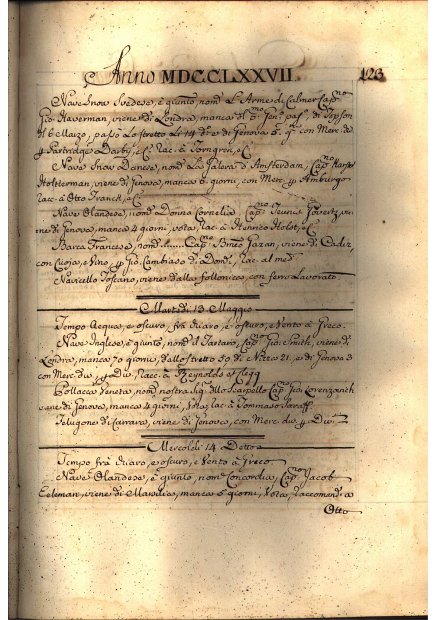 Anno MDCCLXXVII. 123
Nave Snow Svedese, è giunto, nom.º L'Arme di Calmer Cap.no
Gio Haverman, viene di Londra, manca di
il 6 Marzo, passò lo stretto Li 14 d.º e di Genova 6. g.i con Merc. di
Partridge e Darby, e C.º Rac. à Torngren, e C.º
Nave Snow Danese, nom.º La Galera d'Amsterdam, Cap.no
Holtterman, viene di Genova, manca 6. giorni, con Merc. p Amburgo
rac. à Otto Franck, e C.º
Nave Olandese, nom.º Donna Cornelia Cap.no Teunis Govertz, vie=
ne di Genova, manca 4 giorni, vota, rac. à Henrico Holst, e C.º
Barca Francese, nom.º ...... Cap.no Gazan, viene di Cadiz,
con Cuoja, e Vino, p Gio Cambiaso di Dom.º, rac. al med.º
Navicello Toscano, viene dalla follonica, con ferro Lavorato
Martedì 13 Maggio
Tempo Acqua, e oscuro, frà chiaro, e oscuro, e Vento à Greco.
Nave Inglese, è giunto, nom.º il Tartaro, Cap.no Gio: Smith, viene di
Londra, manca 70 giorni, dallo stretto 30. di Nizza 21. e di Genova 3
con Merc. div.e, p Div.i racc. à Reynolds e Clegg
Pollacca Veneta, nom.º nostra Sig.ra dello Scarpello Cap.no Gio Lorenzanch
viene di Genova, manca 4 giorni, Vota, rac. à Tommaso
Filugone di Carrara, viene di Genova, con Merc. div.e p Div.i
Mercoldì 14 Detto
Tempo frà chiaro, e oscuro, e Vento à Greco
Nave Olandese, è giunto, nom.º Concordia, Cap.no Jacob
Eeleman, viene di Marsilia, manca 6 giorni, Vota, raccomend.a à
Otto